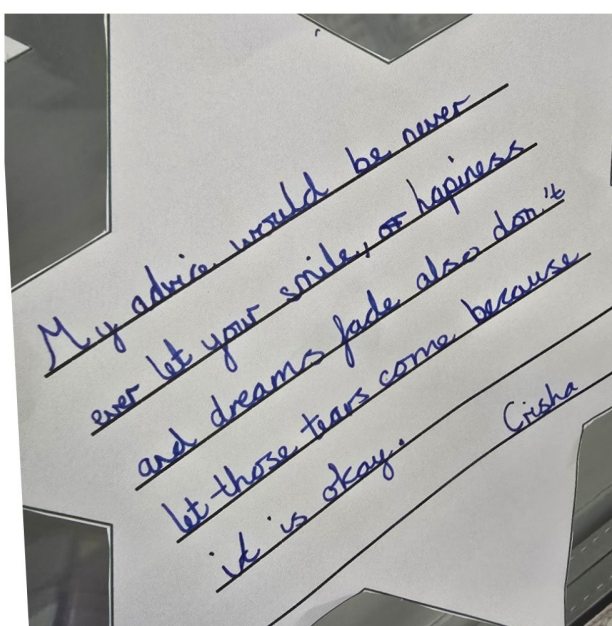 My advice would be never
ever let your smile, hapiness
and dreams fade also don't
let those tears come because
it is okay.
Crisha